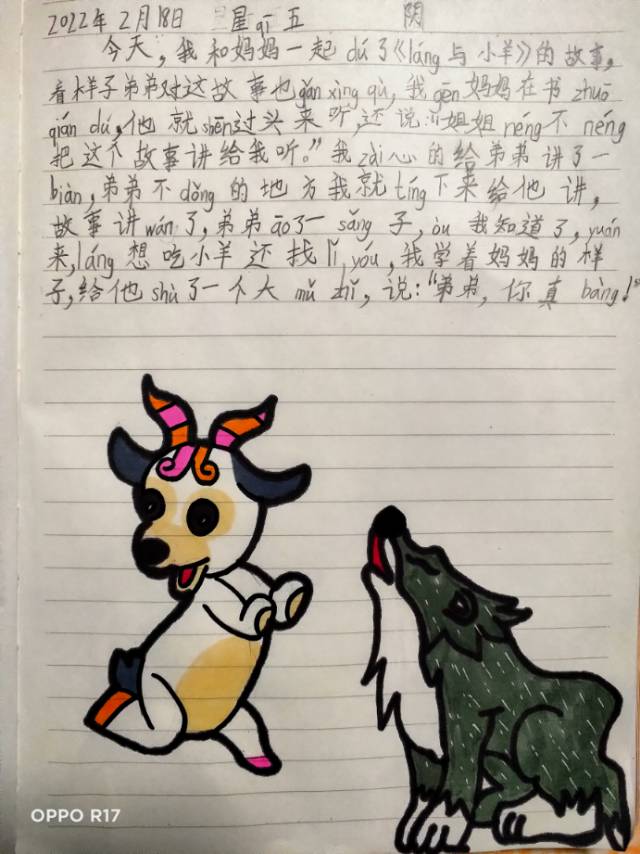 2022年2月18日 星qī五 阴
今天,我和妈妈一起dú了《láng与小羊》的故事,
看样子弟弟对这故事也gǎn xìng qù,我gēn妈妈在书zhuō
qián dú,他就shēn过头来听,还说:"姐姐néng不néng
把这个故事讲给我听。"我zài心的给弟弟讲了一
biàn,弟弟不dǒng的地方我就tíng下来给他讲,
故事讲wán了,弟弟āo了一sǎng子,òu我知道了,yuán
来,láng想吃小羊还找lǐ yóu,我学着妈妈的样
子,给他shù了一个大mǔ zhǐ,说:"弟弟,你真bàng!"
OPPO R17